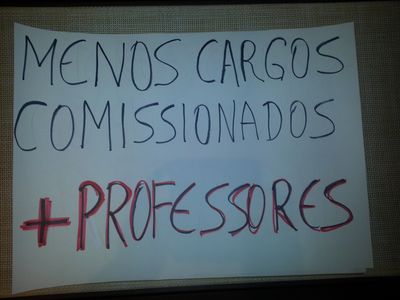 MENOS CARGOS
COMISSIONADOS
+PROFESSORES